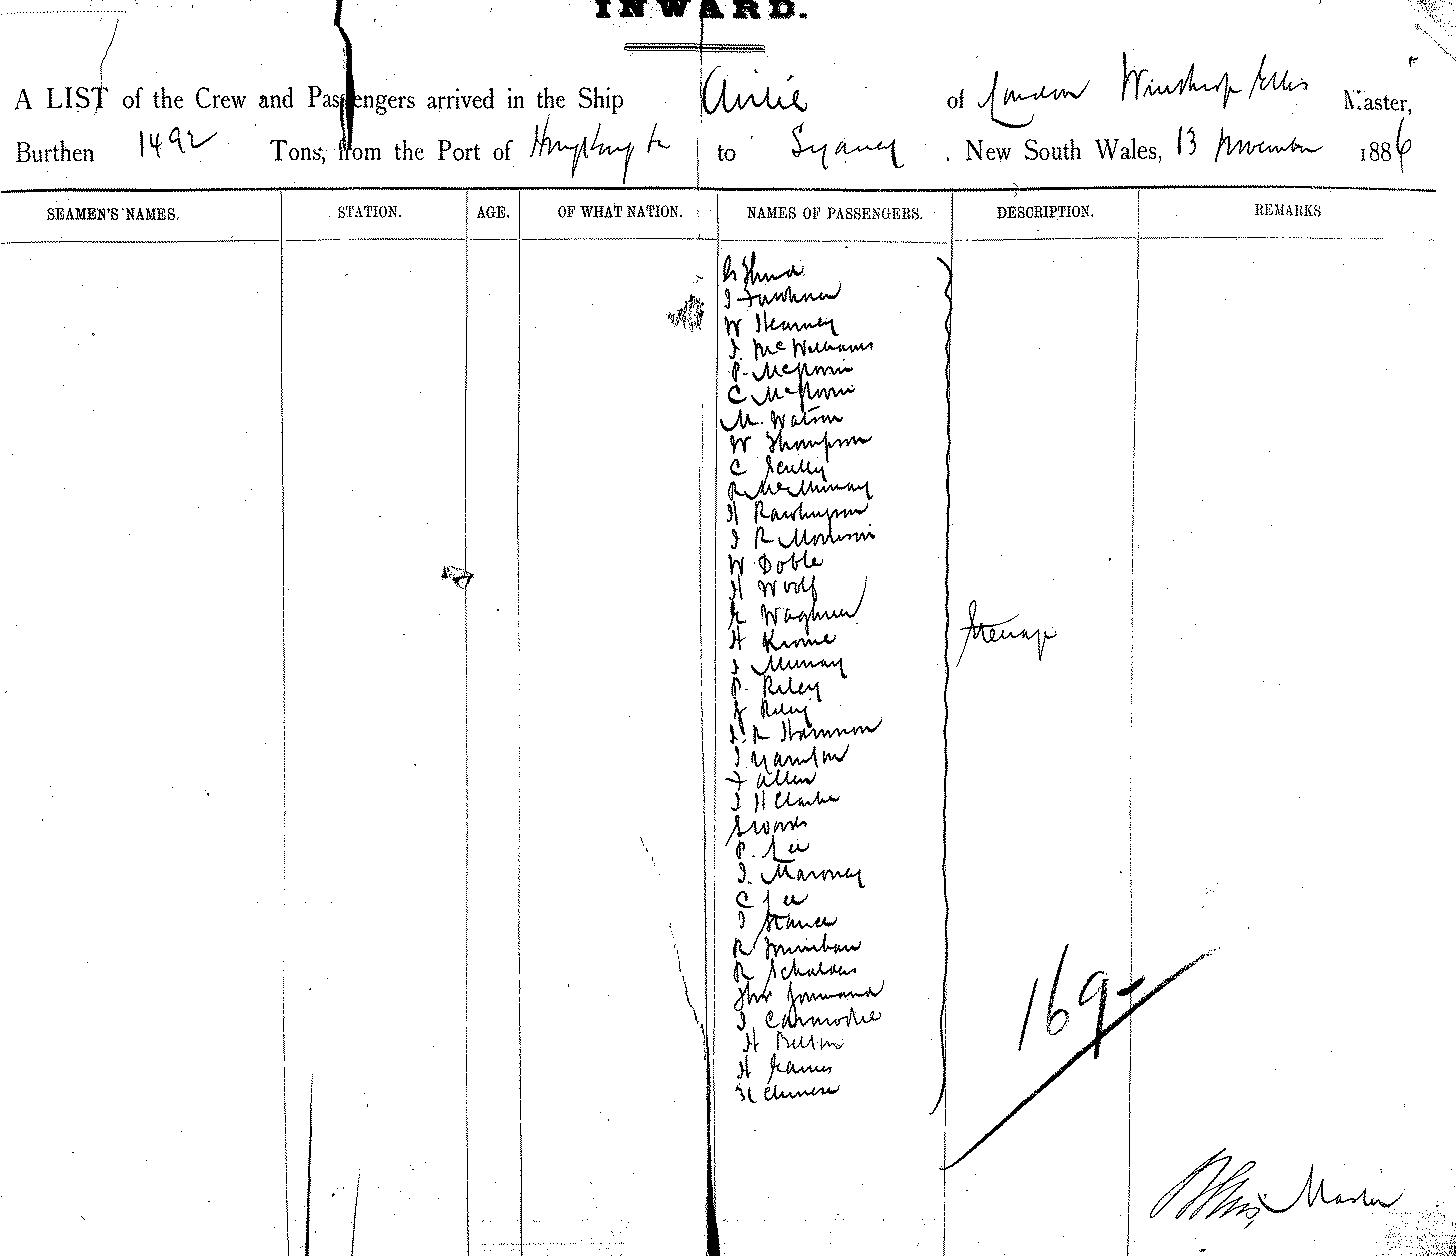 INWARD.
A LIST of the Crew and Passengers arrived in the Ship Airlie of London Winthrop Ellis Master,
Burthen 1492 Tons, from the Port of Hong Kong to Sydney . New South Wales, 13 November 1886
SEAMEN'S NAMES. STATION. AGE. OF WHAT NATION. NAMES OF PASSENGERS. DESCRIPTION. REMARKS
W Kearney
J. McWilliams
P.
C
M. Watson
W Thompson
C Scully
R McMurray
H
J R Morrison
W Doble
H Woolf
Wagner
Steerage
H Krome
J Murray
P. Riley
Riley
J. R Hammon
J
F Allen
J H Clarke
P. Lee
J. Maroney
C Lee
J Stance
R
R
J Carmodie
H
H James
Chinese
169
Ellis Master